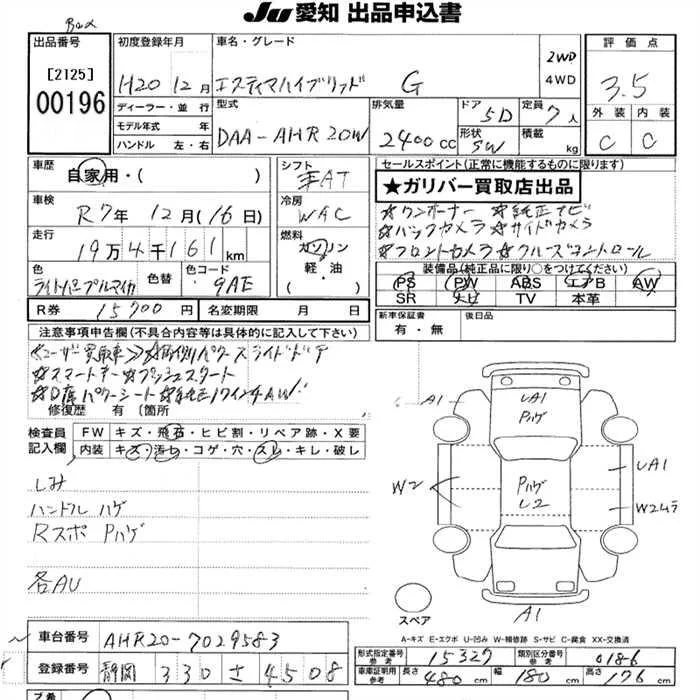 JU 愛知 出品申込書
出品番号
[2125]
00196
初度登録年月
H20 12月
ディーラー・並行
モデル年式 年
ハンドル 左・右
車名・グレード
エスティマハイブリッド G
2WD
4WD
型式
DAA-AHR20W
排気量
2400cc
ドア
5D
形状
SW
定員
7人
積載
kg
評価点
3.5
外装 内装
C C
車歴
自家用・( )
車検
R7年 12月(16日)
走行
19万4千161km
色
ライトパープルマイカ
色替
色コード
9AE
R券 15700円
名変期限 月 日
シフト
AT
冷房
WAC
燃料
ガソリン
軽・油
( )
セールスポイント(正常に機能するものに限ります)
★ガリバー買取店出品
☆ワンオーナー ☆純正ナビ
☆バックカメラ ☆サイドカメラ
☆フロントカメラ ☆クルーズコントロール
装備品(純正品に限り○をつけてください)
PS PW ABS エアB AW
SR ナビ TV 本革
新車保証書
有・無
後日品
注意事項申告欄(不具合内容等は具体的に記入して下さい)
<ユーザー買取車>☆両側パワースライドドア
☆スマートキー ☆プッシュスタート
☆D席パワーシート ☆純正17インチAW
修復歴 有 [箇所
検査員
記入欄
FW キズ・飛石・ヒビ割・リペア跡・X要
内装 キズ・汚れ・コゲ・穴・スレ・キレ・破レ
しみ
ハンドルハゲ
Rスポ Pハゲ
各AU
A1
UA1
Pハゲ
W2
Pハゲ
L2
UA1
W2ムラ
A1
スペア
A-キズ E-エクボ U-凹み W-補修跡 S-サビ C-腐食 XX-交換済
車台番号 AHR20-7029583
登録番号 静岡 330 さ 4508
型式指定番号
参考
15327
類別区分番号
参考
0186
車庫証明用
参考
長さ 480cm
幅 180cm
高さ 176cm